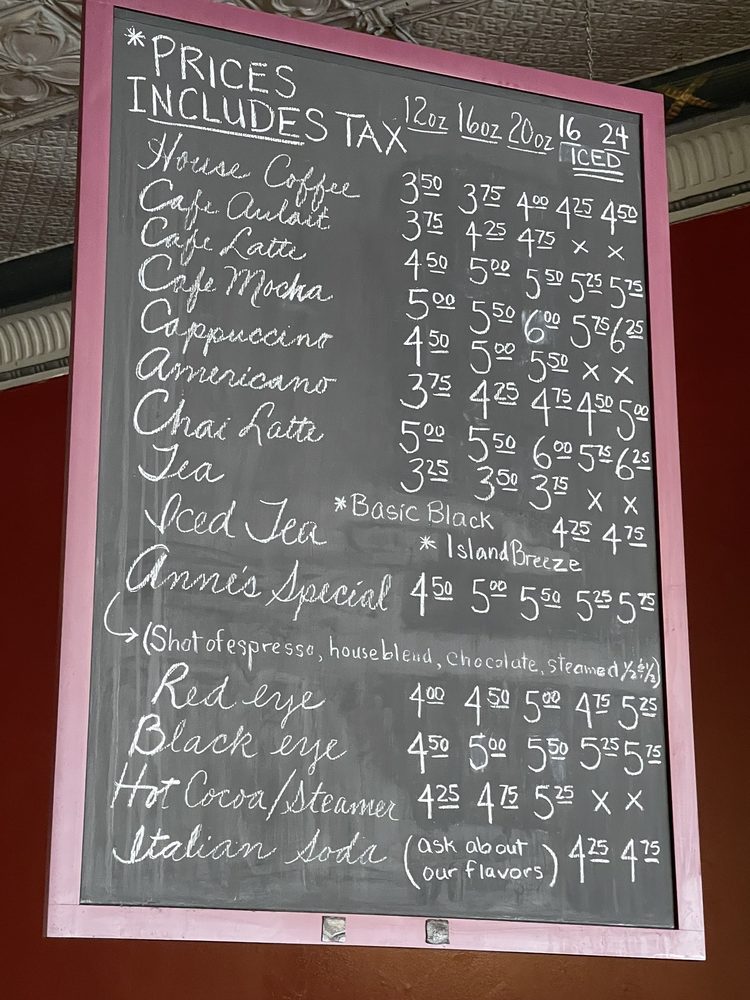 *PRICES
INCLUDES TAX 12oz 16oz 20oz 16 24
ICED
House Coffee 3.50 3.75 4.00 4.25 4.50
Cafe Aulait 3.75 4.25 4.75 x x
Cafe Latte 4.50 5.00 5.50 5.25 5.75
Cafe Mocha 5.00 5.50 6.00 5.75 6.25
Cappuccino 4.50 5.00 5.50 x x
Americano 3.75 4.25 4.75 4.50 5.00
Chai Latte 5.00 5.50 6.00 5.75 6.25
Tea 3.25 3.50 3.75 x x
Iced Tea *Basic Black 4.25 4.75
* Island Breeze
Anne's Special 4.50 5.00 5.50 5.25 5.75
(Shot of espresso, house blend, chocolate, steamed ½ & ½)
Red eye 4.00 4.50 5.00 4.75 5.25
Black eye 4.50 5.00 5.50 5.25 5.75
Hot Cocoa/Steamer 4.25 4.75 5.25 x x
Italian Soda (ask about our flavors) 4.25 4.75